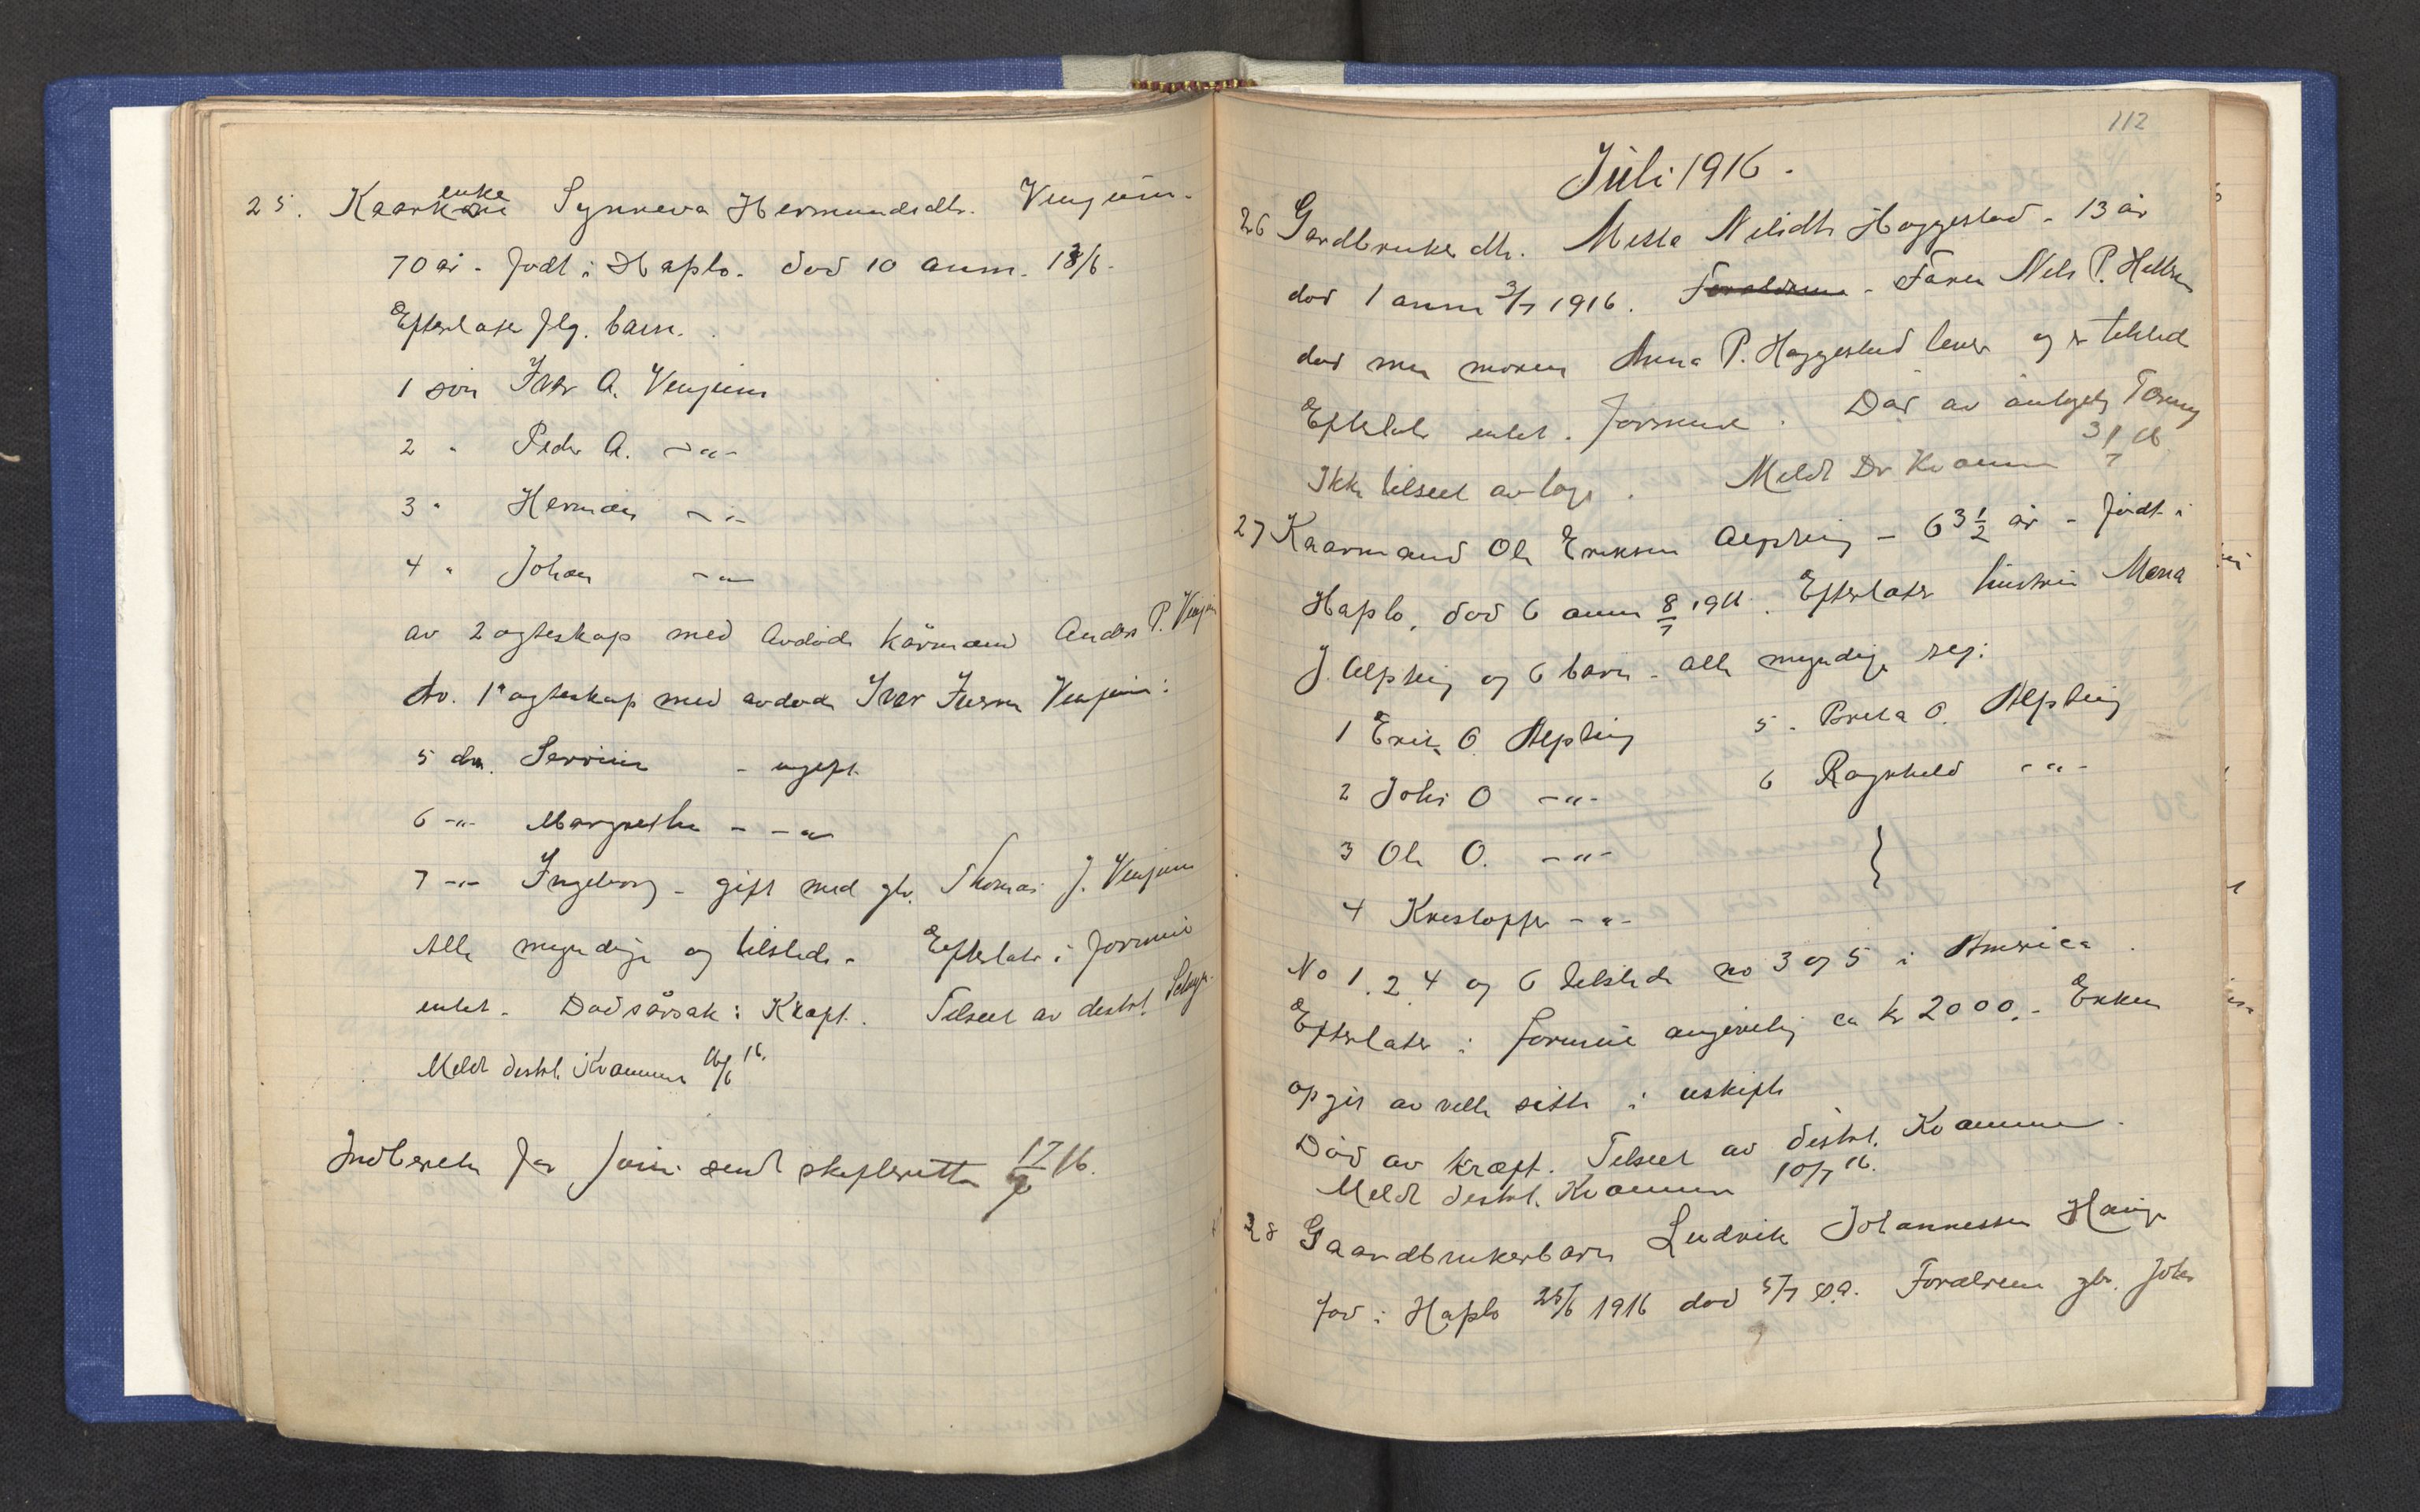 25. Kaarkone enke Synneva Hermundsdtr. Venjum.
70 år. født i Hafslo. død 10 aum. 13/6.
Efterlater flg. barn.
1 søn Iver A. Venjum
2 " Peder A. -"-
3 " Herman -"-
4 " Johan -"-
av 2 egteskap med avdøde kårmand Anders P. Venjum
Av. 1ste egteskap med avdøde Iver Iversen Venjum:
5 dtr. Serine - ugift
6 -"- Margrethe - -"-
7 -"- Ingeborg - gift med gbr. Thomas J. Venjum
Alle myndige og tilstede. Efterlater i formue
intet. Dødsårsak: Kræft. Tilseet av distrl.
Meldt distrl. Kvamme 16/6 16.
Indberetn for juni sendt skifteretten 17/7 16.
112
Juli 1916.
26 Gardbruker dtr. Metta Nilsdtr Haggestad - 13 år
død 1 aum 3/7 1916. Forældrene - Faren Nils P.
død men moren Anna P. Haggestad lever og er tilsted
Efterlater intet i formue. Død av antagelig Tæring
Ikke tilseet av læge. Meldt Dr Kvamme 3/7 16
27 Kaarmand Ole Eriksen Alsmo - 63 1/2 år - født i
Hafslo, død 6 aum 8/7 1916. Efterlater hustru Marta
J. og 6 barn - alle myndige seg:
1 Erik O. 5. Brita O.
2 Johs O -"- 6 Ragnhild -"-
3 Ole O. -"- }
4 Kristoffer -"-
No 1. 2. 4 og 6 tilstede no 3 og 5 i America.
Efterlater i formue angivelig ca kr 2000.- Enken
opgir at ville sitte i uskifte
Død av kræft. Tilseet av distrl. Kvamme.
Meldt distrl. Kvamme 10/7 16.
28 Gaardbrukerbarn Ludvik Johannessen Hauge
fød i Hafslo 25/6 1916 død 5/7 s.a. Forældrene gbr. Johs